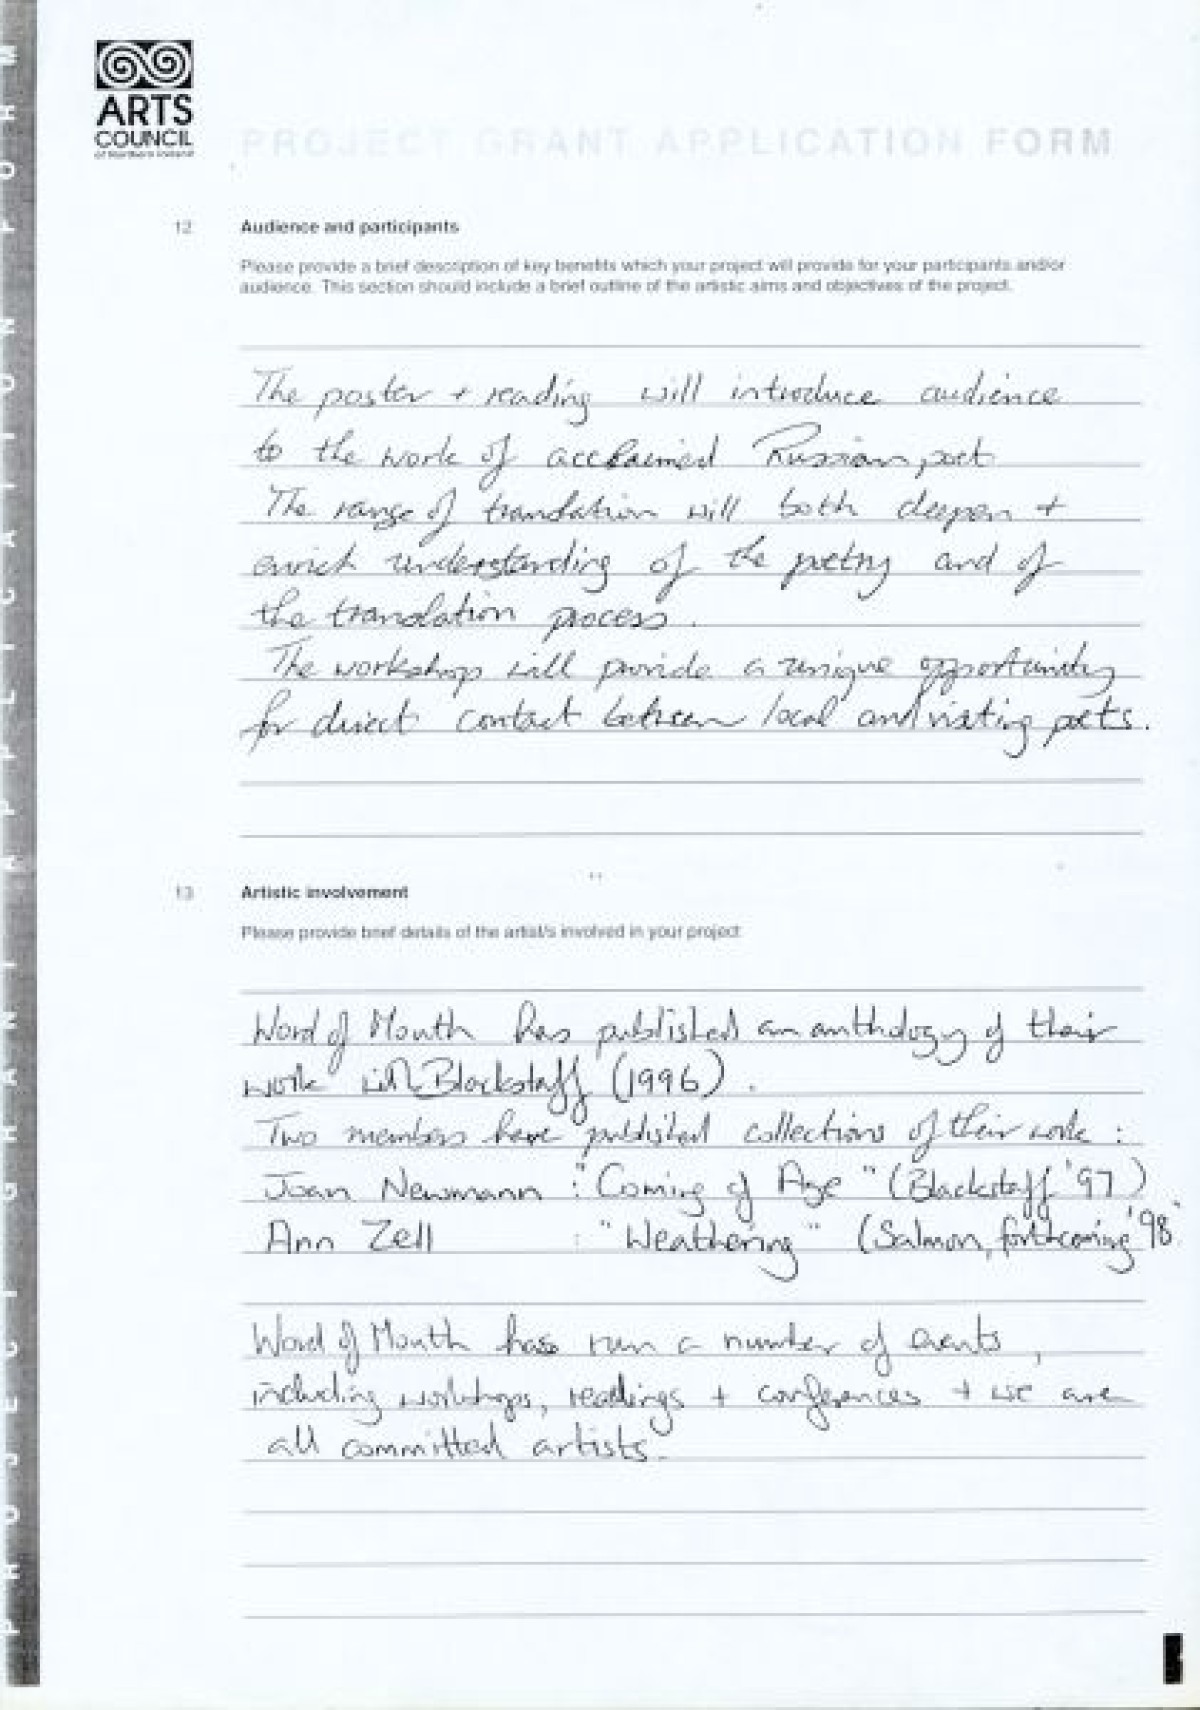 ARTS
COUNCIL
of Northern Ireland
PROJECT GRANT APPLICATION FORM
PROJECT GRANT APPLICATION FORM
12 Audience and participants
Please provide a brief description of key benefits which your project will provide for your participants and/or
audience. This section should include a brief outline of the artistic aims and objectives of the project.
The poster + reading will introduce audience
to the work of acclaimed Russian poet
The range of translation will both deepen +
enrich understanding of the poetry and of
the translation process.
The workshop will provide a unique opportunity
for direct contact between local and visiting poets.
13 Artistic involvement
Please provide brief details of the artist/s involved in your project
Word of Mouth has published an anthology of their
work with Blackstaff (1996).
Two members have published collections of their work :
Joan Newmann : "Coming of Age" (Blackstaff '97)
Ann Zell : "Weathering" (Salmon, forthcoming '98
Word of Mouth has run a number of events,
including workshops, readings + conferences + we are
all committed artists.